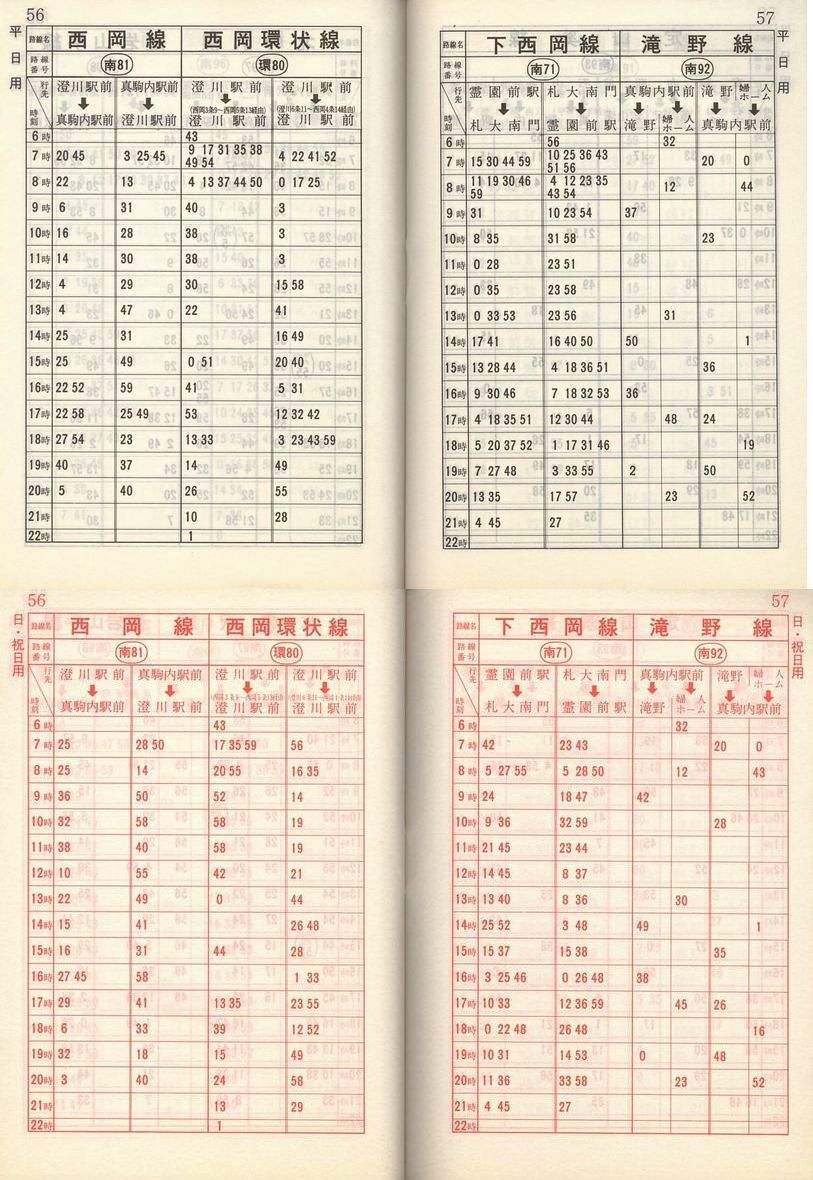 56
平日用
路線名 西岡線 西岡環状線
路線番号 南81 環80
行先 澄川駅前 真駒内駅前 澄川駅前 澄川駅前
(西岡3条9~西岡5条13経由) (澄川6条11~西岡4条14経由)
時刻 真駒内駅前 澄川駅前 澄川駅前 澄川駅前
6時 43
7時 20 45 3 25 45 9 17 31 35 38 4 22 41 52
49 54
8時 22 13 4 13 37 44 50 0 17 25
9時 6 31 40 3
10時 16 28 38 3
11時 14 30 38 3
12時 4 29 30 15 58
13時 4 47 22 41
14時 25 31 16 49
15時 25 49 0 51 20 40
16時 22 52 59 41 5 31
17時 22 58 25 49 53 12 32 42
18時 27 54 23 13 33 3 23 43 59
19時 40 37 14 49
20時 5 40 26 55
21時 10 28
22時 1
57
平日用
路線名 下西岡線 滝野線
路線番号 南71 南92
行先 霊園前駅 札大南門 真駒内駅前 滝野 婦人ホーム
時刻 札大南門 霊園前駅 滝野 婦人ホーム 真駒内駅前
6時 56 32
7時 15 30 44 59 10 25 36 43 20 0
51 56
8時 11 19 30 46 4 12 23 35 12 44
59 43 54
9時 31 10 23 54 37
10時 8 35 31 58 23
11時 0 28 23 51
12時 0 35 23 58
13時 0 33 53 23 56 31
14時 17 41 16 40 50 50 1
15時 13 28 44 4 18 36 51 36
16時 9 30 46 7 18 32 53 36
17時 4 18 35 51 12 30 44 48 24
18時 5 20 37 52 1 17 31 46 19
19時 7 27 48 3 33 55 2 50
20時 13 35 17 57 23 52
21時 4 45 27
22時
56
日・祝日用
路線名 西岡線 西岡環状線
路線番号 南81 環80
行先 澄川駅前 真駒内駅前 澄川駅前 澄川駅前
時刻 真駒内駅前 澄川駅前 澄川駅前 澄川駅前
6時 43
7時 25 28 50 17 35 59 56
8時 25 14 20 55 16 35
9時 36 50 52 14
10時 32 58 58 19
11時 38 40 58 19
12時 10 55 42 21
13時 22 49 0 44
14時 15 41 26 48
15時 16 31 44 28
16時 27 45 58 1 33
17時 29 41 13 35 23 55
18時 6 33 39 12 52
19時 32 18 15 49
20時 3 40 24 58
21時 13 29
22時 1
57
日・祝日用
路線名 下西岡線 滝野線
路線番号 南71 南92
行先 霊園前駅 札大南門 真駒内駅前 滝野 婦人ホーム
時刻 札大南門 霊園前駅 滝野 婦人ホーム 真駒内駅前
6時 32
7時 42 23 43 20 0
8時 5 27 55 5 28 50 12 43
9時 24 18 47 42
10時 9 36 32 59 28
11時 21 45 23 44
12時 14 45 8 37
13時 13 40 8 36 30
14時 25 52 3 48 49 1
15時 15 37 15 38 35
16時 3 25 46 0 26 48 38
17時 10 33 12 36 59 45 26
18時 0 22 48 26 48 16
19時 10 31 14 53 0 48
20時 11 36 33 58 23 52
21時 4 45 27
22時